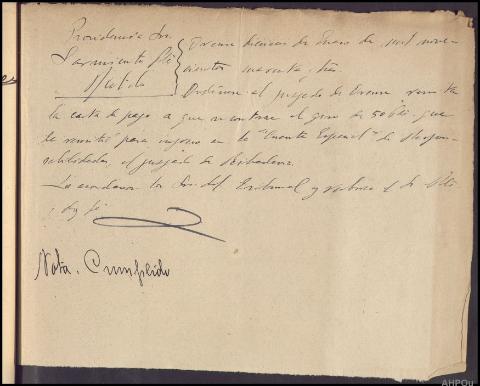 Providencia Sres.
Sarmiento
Orense de Enero de mil nove-
cientos cuarenta y tres.
Ordénese al juzgado de Orense remita
la carta de pago a que se contrae el giro de 50 que
le remitió para ingreso en la "Cuenta Especial" de Respon-
sabilidades, el juzgado de Ribadavia.
Lo acordaron los Sres. del Tribunal y rubrica el
doy fé
Nota. Cumplido
AHPOu